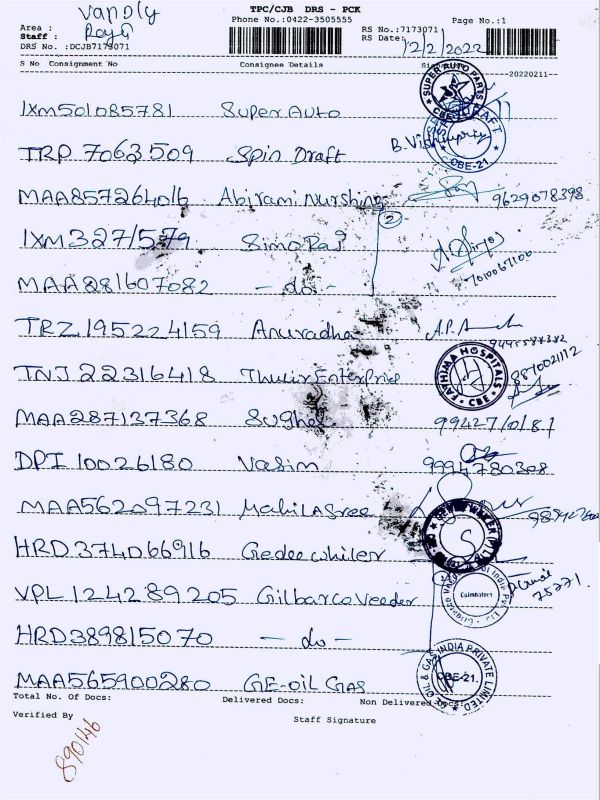 TPC/CJB DRS - PCK
Vandly
Area :
Phone No.:0422-3505555
Page No.:1
Staff : RoyG
RS No.:7173071
DRS No. :DCJB7173071
RS Date: 12/2/2022
S No Consignment No Consignee Details
--20220211--
IXM501085781 Super Auto
SUPER AUTO PARTS CBE-21
TRP 7063509 Spin Draft
CBE-21
MAA857264016 Abirami Nurshing 9629078398
IXM327/579 Simo Raj 2
7010067100
MAA281607082 - do -
TRZ195224159 Anuradha A.P.
TNJ22316418 Thulir Enterprice
FATHIMA HOSPITALS CBE
8870021112
MAA287137368
DPI10026180 Vasim 9994780308
MAA562097231
HRD374066916 Gedee whiler
VPL124289205 Gilbarco Veeder
Coimbatore
75771
HRD389815070 - do -
MAA565900280 GE-oil GAS
OIL & GAS INDIA PRIVATE LIMITED CBE-21.
Total No. Of Docs: Delivered Docs: Non Delivered Docs:
Verified By Staff Signature
890146